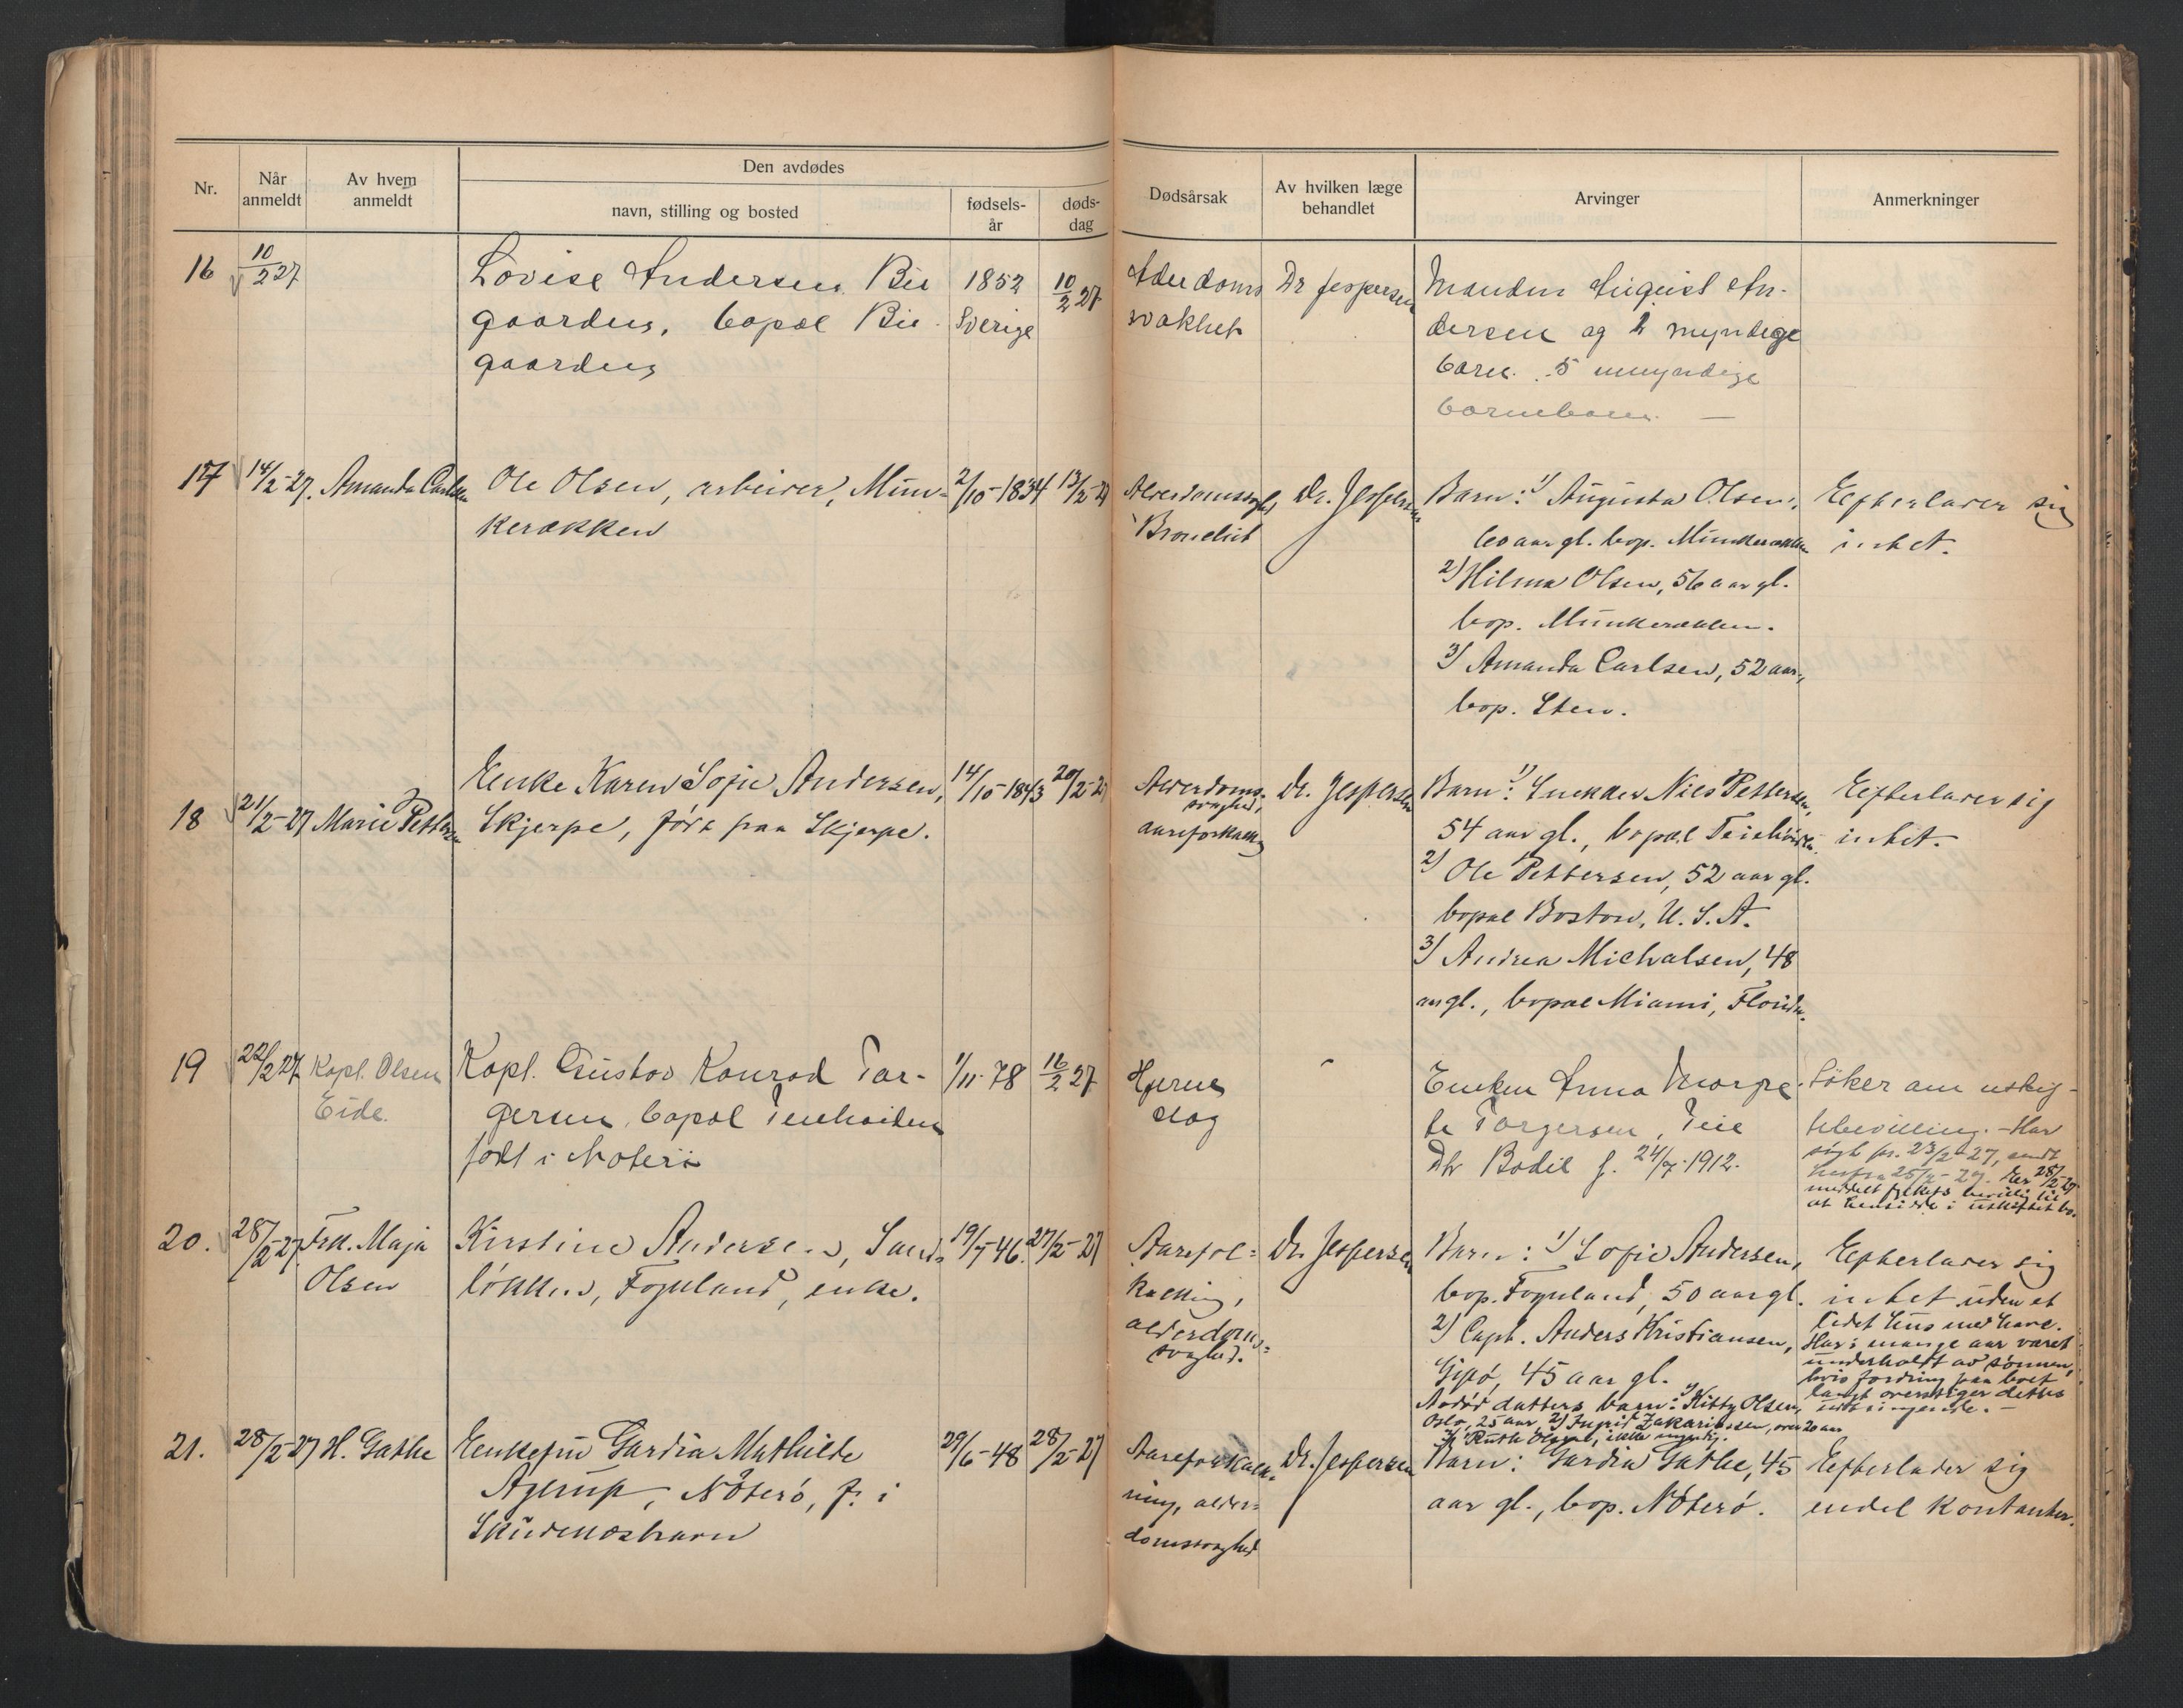 Nr.
Når anmeldt
Av hvem anmeldt
Den avdødes
navn, stilling og bosted
fødsels-år
døds-dag
Dødsårsak
Av hvilken læge behandlet
Arvinger
Anmerkninger
16
10/2 27
Lovise Andersen Bie
gaarden, bopæl Bie
gaarden
1852
Sverige
10/2 27
Alderdoms
svakhet
Dr Jespersen
Manden August An-
dersen og 2 myndige
barn. 5 umyndige
barnebarn. —
17
14/2-27.
Amanda Carlsen
Ole Olsen, arbeider, Mun-
kerækken
2/10-1834
13/2-27
Alderdomssvaghed,
Bronchit
Dr. Jespersen
Barn: 1) Augusta Olsen,
60 aar gl. bop. Munkerækken
2) Hilma Olsen, 56 aar gl.
bop. Munkerækken.
3) Amanda Carlsen, 52 aar,
bop. Sten.
Efterlader sig
intet.
18
21/2-27
Marie Pettersen
Enke Karen Sofie Andersen,
Skjerpe, født paa Skjerpe.
14/10-1843
20/2-27
Alderdoms-
svaghed,
aareforkalkn
Dr. Jespersen
Barn: 1) Snekker Nils Pettersen,
54 aar gl., bopæl Teiehöiden.
2) Ole Pettersen, 52 aar gl.
bopæl Boston, U. S. A.
3) Andrea Michalsen, 48
aar gl., bopæl Miami, Florida.
Efterlader sig
intet.
19
22/2 27
Kapt. Olsen
Eide.
Kapt. Gustav Konrad Tor-
gersen, bopæl Teiehöiden
født i Nöterö
1/11-78
16/2 27
Hjerne
slag
-
Enken Anna Margre-
te Torgersen, Teie
Dtr Bodil f. 24/7-1912.
Söker om uskif-
tebevilling. - Har
sögt pr. 23/2-27, sendt
herfra 25/2-27. Er 28/2-27
meddelt fylkets bevilling til
at hensidde i uskiftet bo.
20.
28/2-27.
Frk. Maja
Olsen
Kirstine Andersen, Sand-
lökken, Föynland, enke.
19/7-46.
27/2-27
Aarefor-
kalkning,
alderdoms-
svaghed.
Dr. Jespersen
Barn: 1) Sofie Andersen,
bop. Föynland, 50 aar gl.
2) Capt. Anders Kristiansen,
Gipö, 45 aar gl.
Avdöd datters barn: 1) Kitty Olsen,
Oslo, 25 aar, 2) Ingrid Zakariassen, over 20 aar
3) Ruth Olsen, ikke myndig.
Efterlader sig
intet uden et
lidet hus med have.
Har i mange aar været
underholdt av sönnen,
hvis fordring paa boet
langt overstiger dettes
utbringende. -
21.
28/2-27
H. Gathe
Enkefru Gardia Mathilde
Agerup, Nöterö, f. i
Skudeneshavn
29/6-48
28/2-27
Aareforkalk-
ning, alder-
domssvaghed
Dr. Jespersen
Barn: Gardia Gathe, 45
aar gl., bop. Nöterö.
Efterlader sig
endel kontanter.